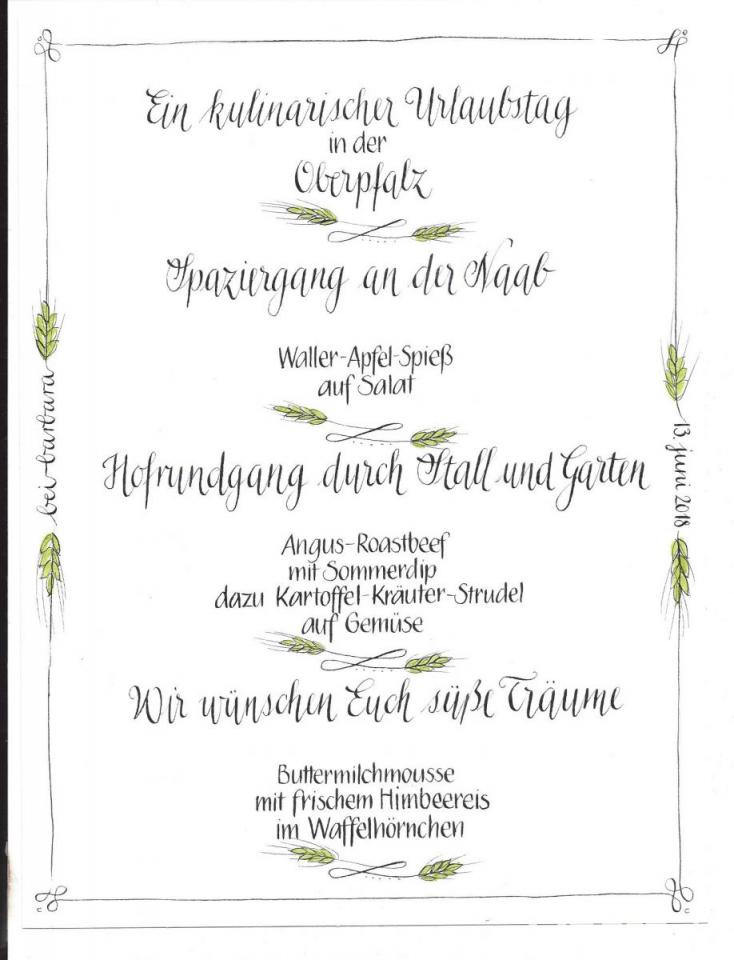 Ein kulinarischer Urlaubstag
in der
Oberpfalz
Spaziergang an der Naab
Waller-Apfel-Spieß
auf Salat
bei barbara
13. juni 2018
Hofrundgang durch Stall und Garten
Angus-Roastbeef
mit Sommerdip
dazu Kartoffel-Kräuter-Strudel
auf Gemüse
Wir wünschen Euch süße Träume
Buttermilchmousse
mit frischem Himbeereis
im Waffelhörnchen